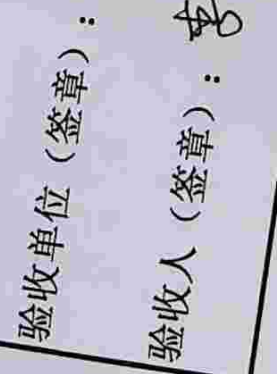 验收单位（签章）：
验收人（签章）：